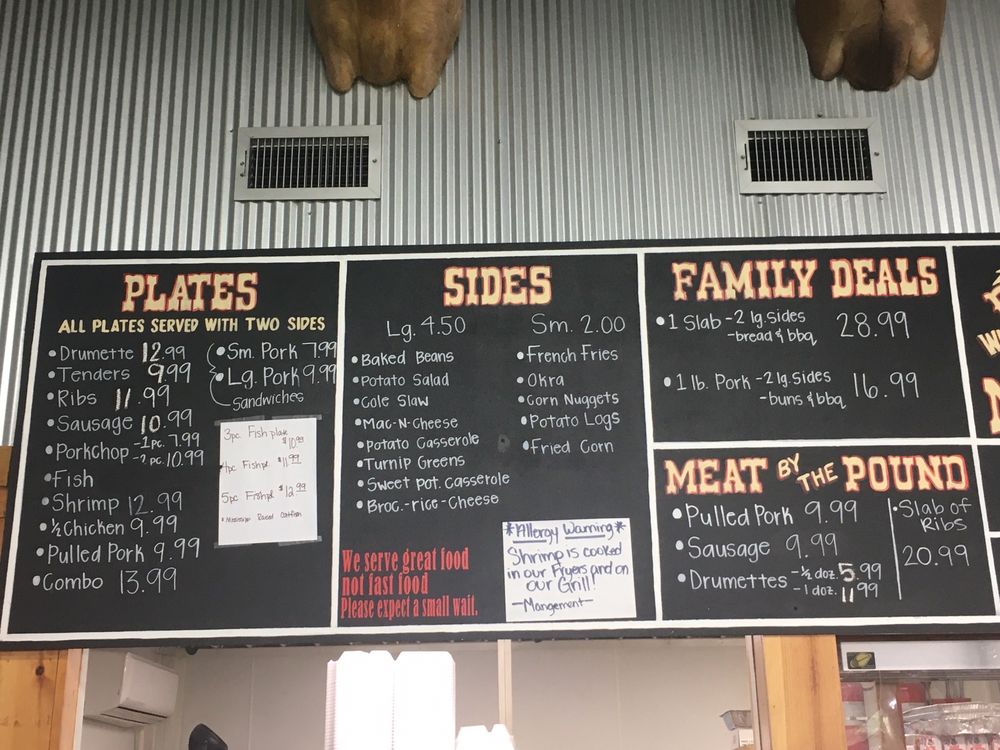 PLATES
ALL PLATES SERVED WITH TWO SIDES
•Drumette 12.99
•Tenders 9.99
•Ribs 11.99
•Sausage 10.99
•Porkchop -1pc. 7.99
-2pc. 10.99
•Fish
•Shrimp 12.99
•½Chicken 9.99
•Pulled Pork 9.99
•Combo 13.99
•Sm. Pork 7.99
•Lg. Pork 9.99
Sandwiches
3pc. Fish plate $10.99
4pc Fishpl $11.99
5pc Fishpl $12.99
* Mississippi Raised Catfish
SIDES
Lg. 4.50
•Baked Beans
•Potato Salad
•Cole Slaw
•Mac-N-Cheese
•Potato Casserole
•Turnip Greens
•Sweet pot. Casserole
•Broc.-rice-Cheese
Sm. 2.00
•French Fries
•Okra
•Corn Nuggets
•Potato Logs
•Fried Corn
We serve great food
not fast food
Please expect a small wait.
*Allergy Warning*
Shrimp is cooked
in our Fryers and on
our Grill!
-Mangement-
FAMILY DEALS
•1 Slab -2 lg. sides 28.99
-bread & bbq
•1 lb. Pork -2 lg. sides 16.99
-buns & bbq
MEAT BY THE POUND
•Pulled Pork 9.99
•Sausage 9.99
•Drumettes -½ doz. 5.99
-1 doz. 11.99
•Slab of
Ribs
20.99